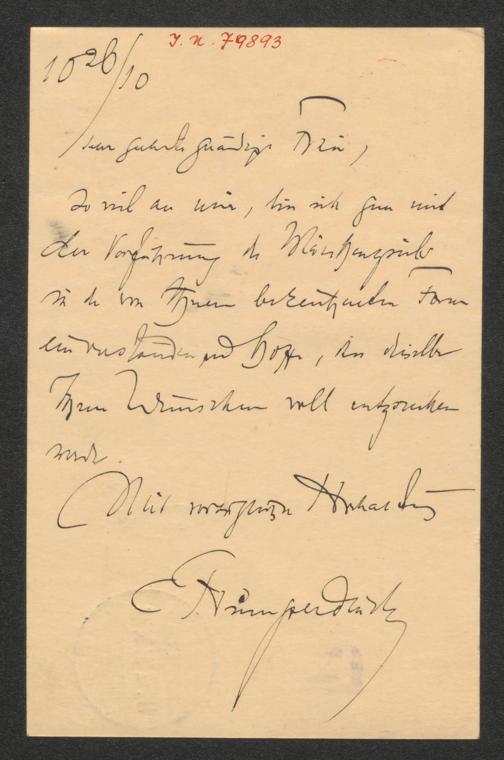 I. N. 79893
10 26/10
Sehr geehrte gnädige Frau,
So viel an mir, bin ich gern mit
der Vorführung des
in der von Ihnen Form
einverstanden und hoffe, daß dieselbe
Ihren Wünschen voll entsprechen
werde.
Mit vorzüglicher Hochachtung
E Humperdinck